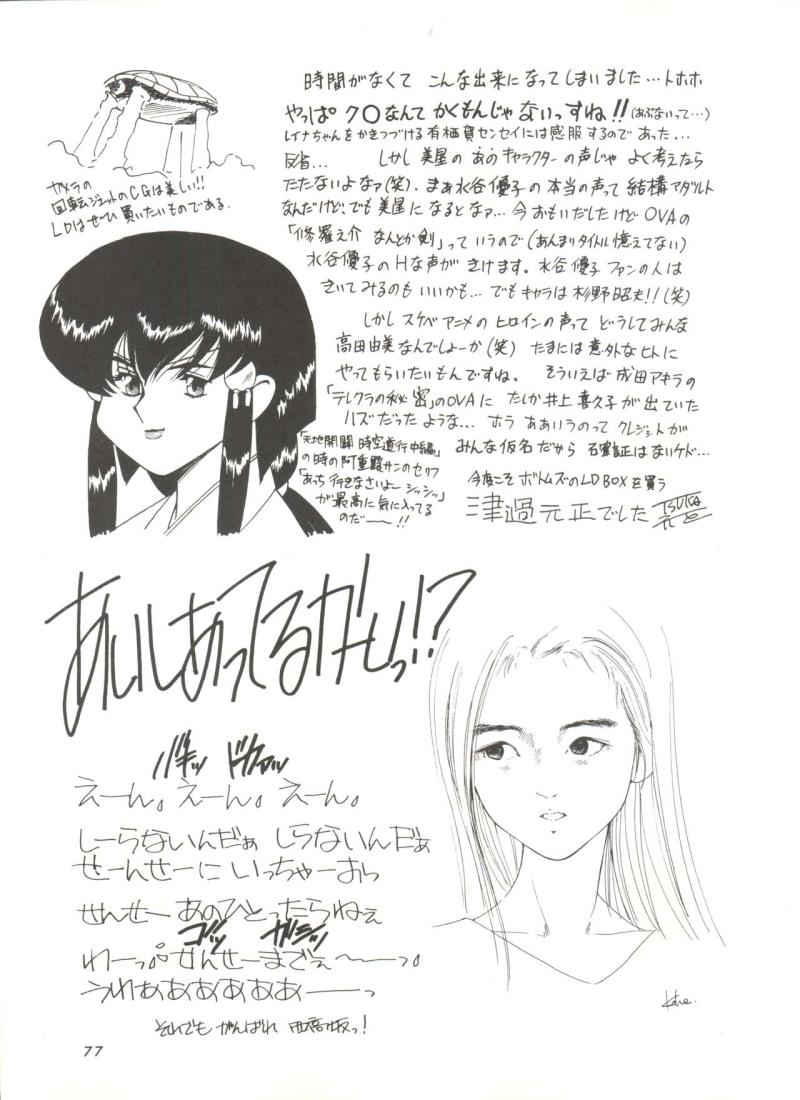 時間がなくて こんな出来になってしまいました…トホホ
やっぱ ク〇なんて かくもんじゃ ないっすね!!(あぶないって…)
レイナちゃんをかきつづける 有栖賀センセイには 感服するのであった…
反省… しかし 美星の あのキャラクターの声じゃ よく考えたら
たたないよなァ(笑). まぁ水谷優子の本当の声って 結構アダルト
なんだけど、でも美星になるとなァ…今おもいだしたけどOVAの
「修羅之介 なんとか剣」って いうので(あんまりタイトル憶えてない)
水谷優子のHな声がきけます。水谷優子ファンの人は
きいてみるのもいいかも… でもキャラは杉野昭夫!!(笑)
しかしスケベアニメのヒロインの声って どうしてみんな
高田由美なんでしょーか(笑) たまには意外なヒトに
やってもらいたいもんですね。 そういえば 成田アキラの
「テレクラの秘密」のOVAに たしか井上喜久子が出ていた
ハズだったような… ホラ ああいうのって クレジットが
みんな仮名だから 石実証はないケド…
今度こそ ボトムズのLD BOXを買う
津過元正でした
ガメラの
回転ジェットのCGは美しい!!
LDはぜひ買いたいものである.
「天地開闢 時空道行中編」
の時の阿重霞サンのセリフ
「あっち行きなさいよー シッシッ」
が最高に気に入ってる
のだ――!!
バキッ ドカァッ
えーん。えーん。えーん。
しーらないんだぁ しらないんだぁ
せーんせーに いっちゃーおっ
せんせー あのひとったらねぇ
ゴッ ガシッ
わーっ。せんせーまでぇ〜――っ。
うわぁああああああ――っ
それでも がんばれ 西高版っ!
77